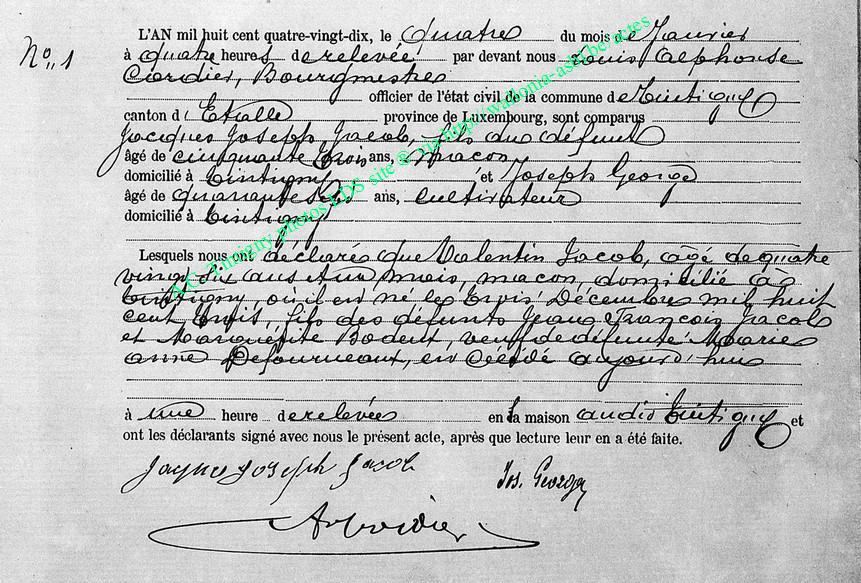 N° 1
L'AN mil huit cent quatre-vingt-dix, le quatre du mois de Janvier
à quatre heures de relevée par devant nous Louis Alphonse
Cordier, Bourgmestre
officier de l'état civil de la commune de Tintigny
canton d' Etalle province de Luxembourg, sont comparus
Jacques Joseph Jacob, fils du défunt
âgé de cinquante trois ans, maçon
domicilié à Tintigny et Joseph George
âgé de quarante ans, cultivateur
domicilié à Tintigny
Lesquels nous ont déclaré que Valentin Jacob, âgé de quatre
vingt six ans et un mois, maçon, domicilié à
Tintigny, où il est né le trois Décembre mil huit
cent trois, fils des défunts Jean François Jacob
et Marguerite Bodeux, veuf de défunte Marie
anne Defourneaux, est décédé aujourd'hui
à une heure de relevée en la maison audit Tintigny et
ont les déclarants signé avec nous le présent acte, après que lecture leur en a été faite.
Jaques Joseph Jacob Jos. George
A Cordier
A.G. Tintigny photos LDS site © via http://wallonia-asbl.be/actes